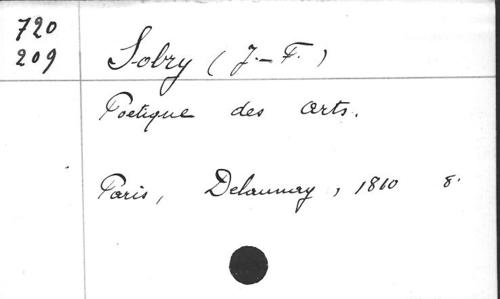 720
209
Sobry (J.-F.)
Poetique des arts.
Paris, Delaunay, 1810 8.